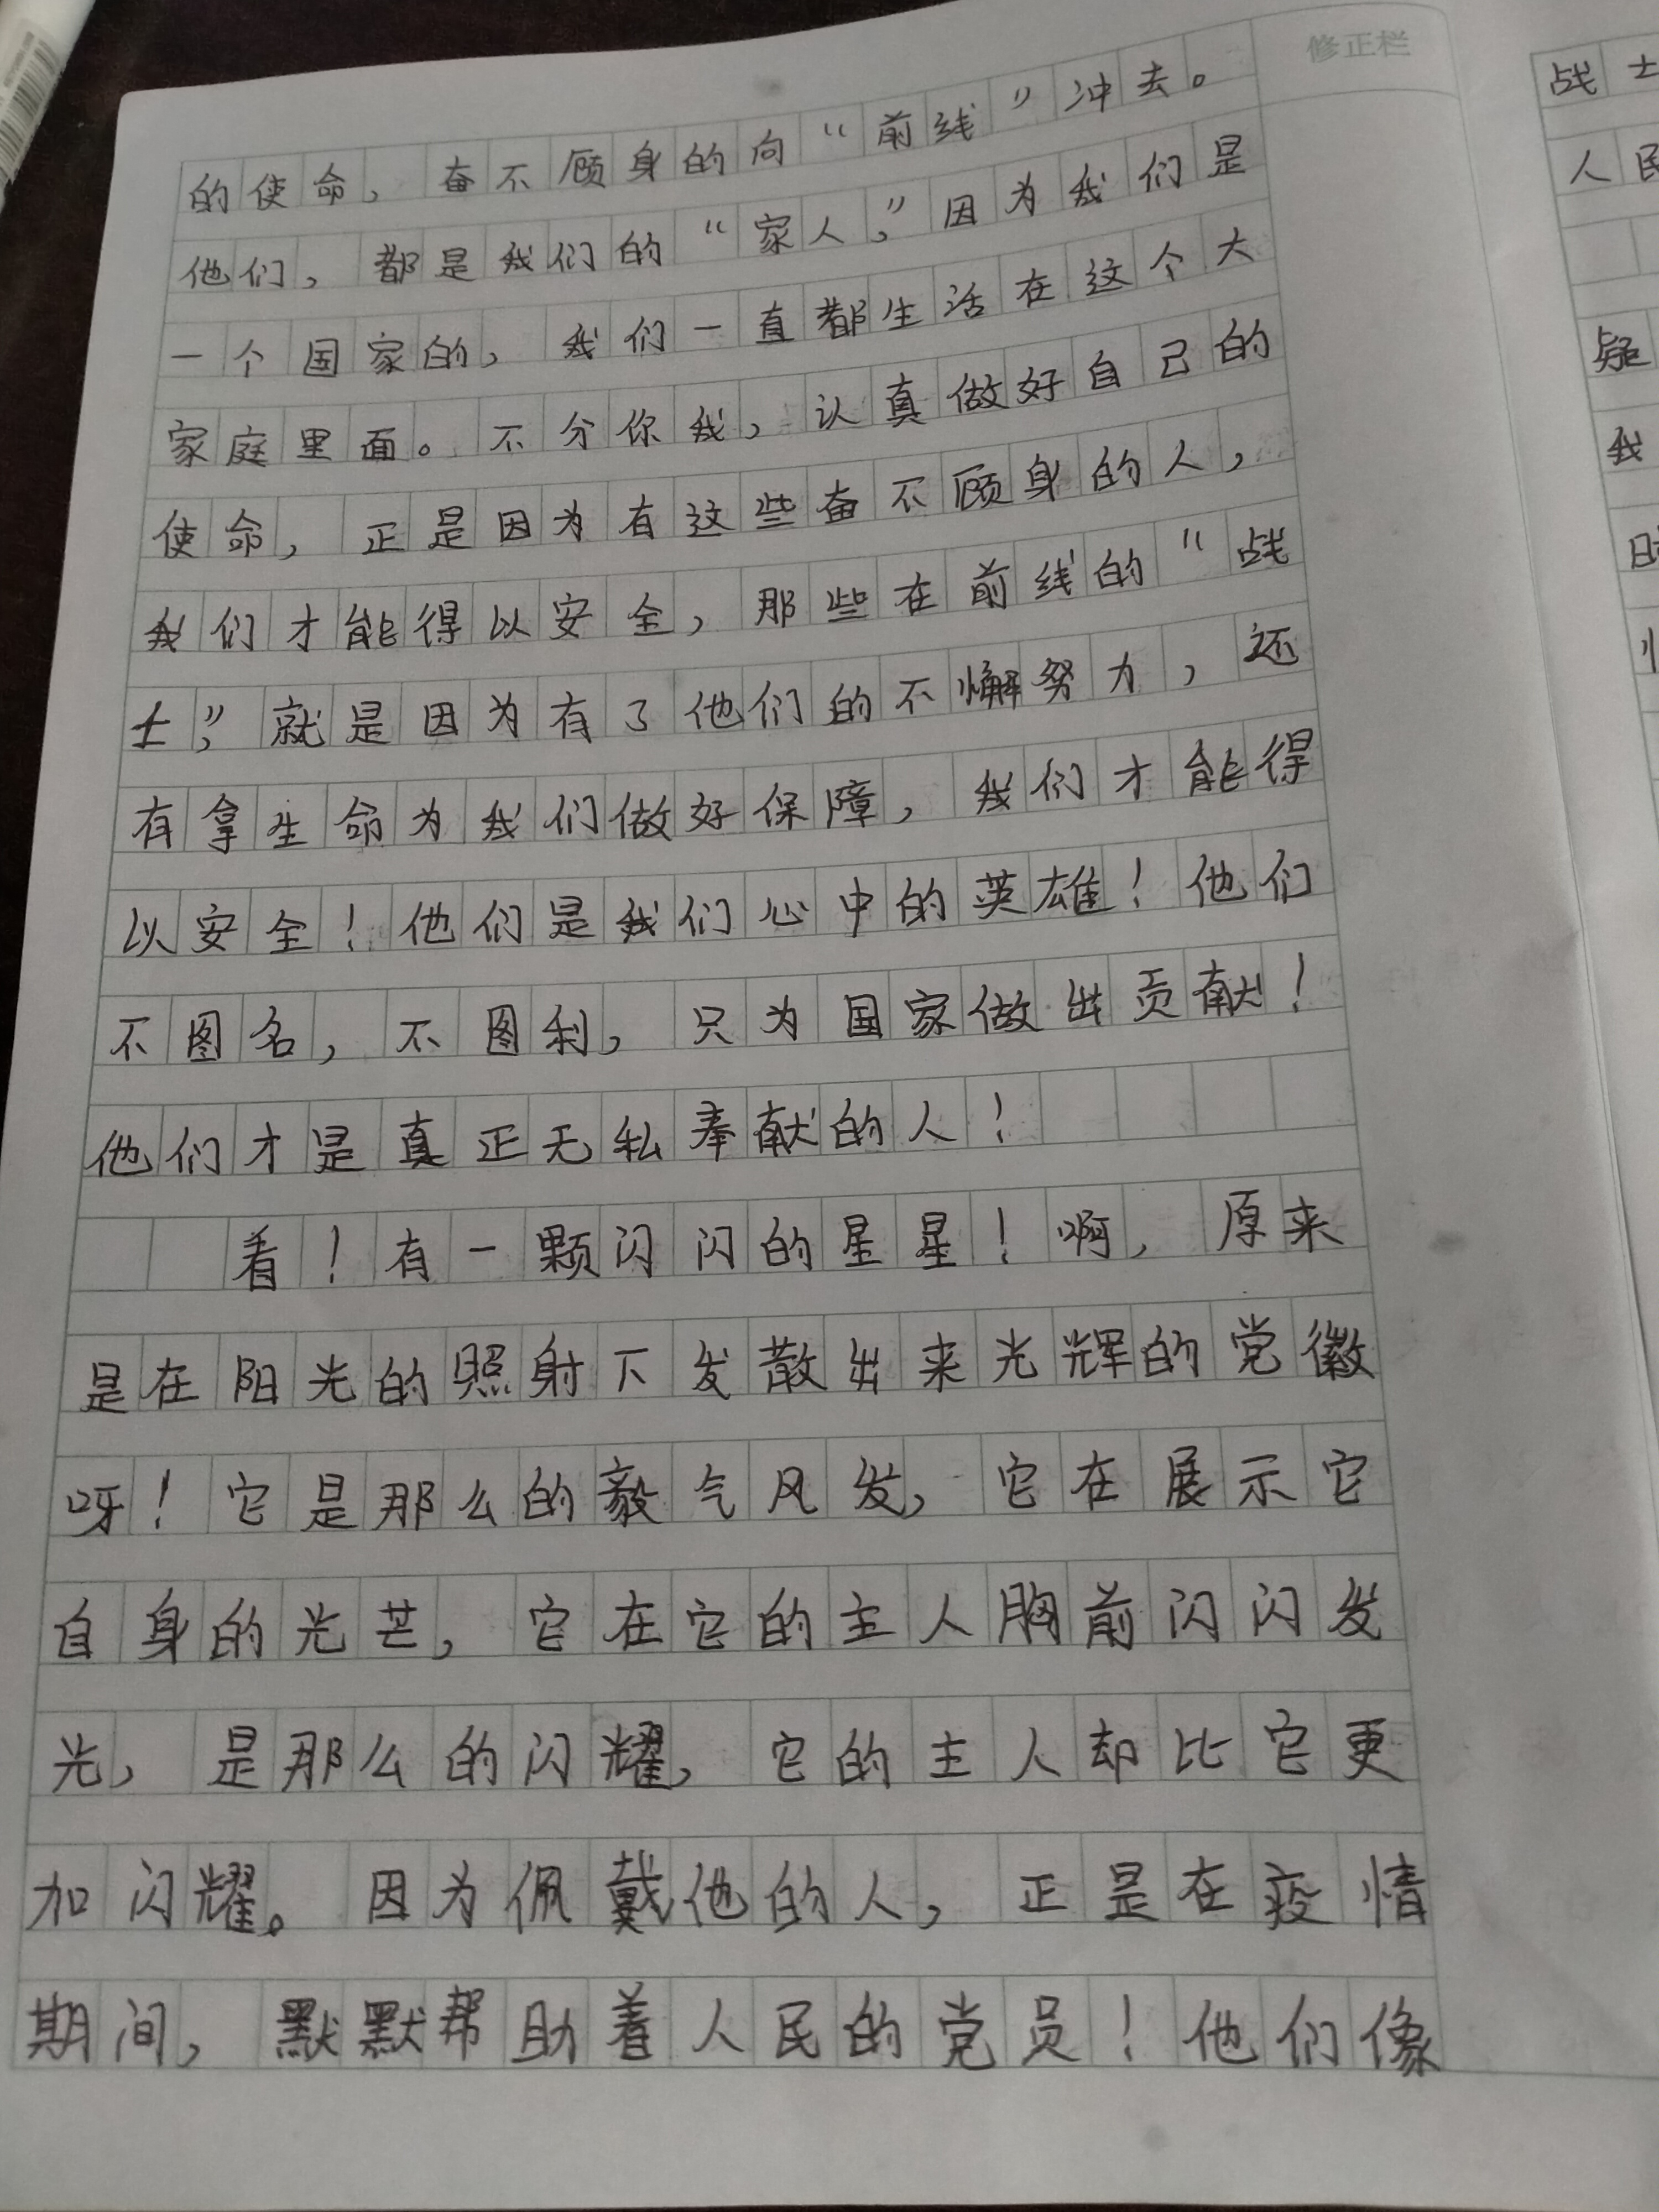 修正栏
的使命，奋不顾身的向“前线”冲去。
他们，都是我们的“家人，”因为我们是
一个国家的，我们一直都生活在这个大
家庭里面。不分你我，认真做好自己的
使命，正是因为有这些奋不顾身的人，
我们才能得以安全，那些在前线的“战
士，”就是因为有了他们的不懈努力，还
有拿生命为我们做好保障，我们才能得
以安全！他们是我们心中的英雄！他们
不图名，不图利，只为国家做出贡献！
他们才是真正无私奉献的人！
看！有一颗闪闪的星星！啊，原来
是在阳光的照射下发散出来光辉的党徽
呀！它是那么的毅气风发，它在展示它
自身的光芒，它在它的主人胸前闪闪发
光，是那么的闪耀，它的主人却比它更
加闪耀。因为佩戴他的人，正是在疫情
期间，默默帮助着人民的党员！他们像
战士
人民
疑
我